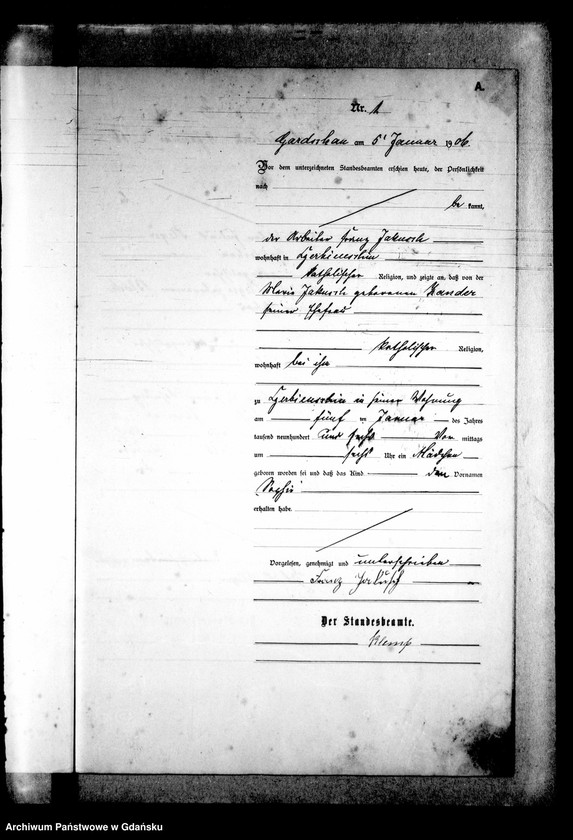 A.
Nr. 1
Gardschau am 5t Januar 1906.
Vor dem unterzeichneten Standesbeamten erschien heute, der Persönlichkeit
nach
be kannt,
der Arbeiter Franz Jakusch
wohnhaft in
katholischer Religion, und zeigte an, daß von der
Maria Jakusch geborenen Kander
seiner Ehefrau
katholischer Religion,
wohnhaft bei ihm
zu in seiner Wohnung
am fünf ten Januar des Jahres
tausend neunhundert und sechs Vor mittags
um sechs Uhr ein Mädchen
geboren worden sei und daß das Kind den Vornamen
Sophie
erhalten habe.
Vorgelesen, genehmigt und unterschrieben
Franz Jakusch
Der Standesbeamte.
Klemp
Archiwum Państwowe w Gdańsku